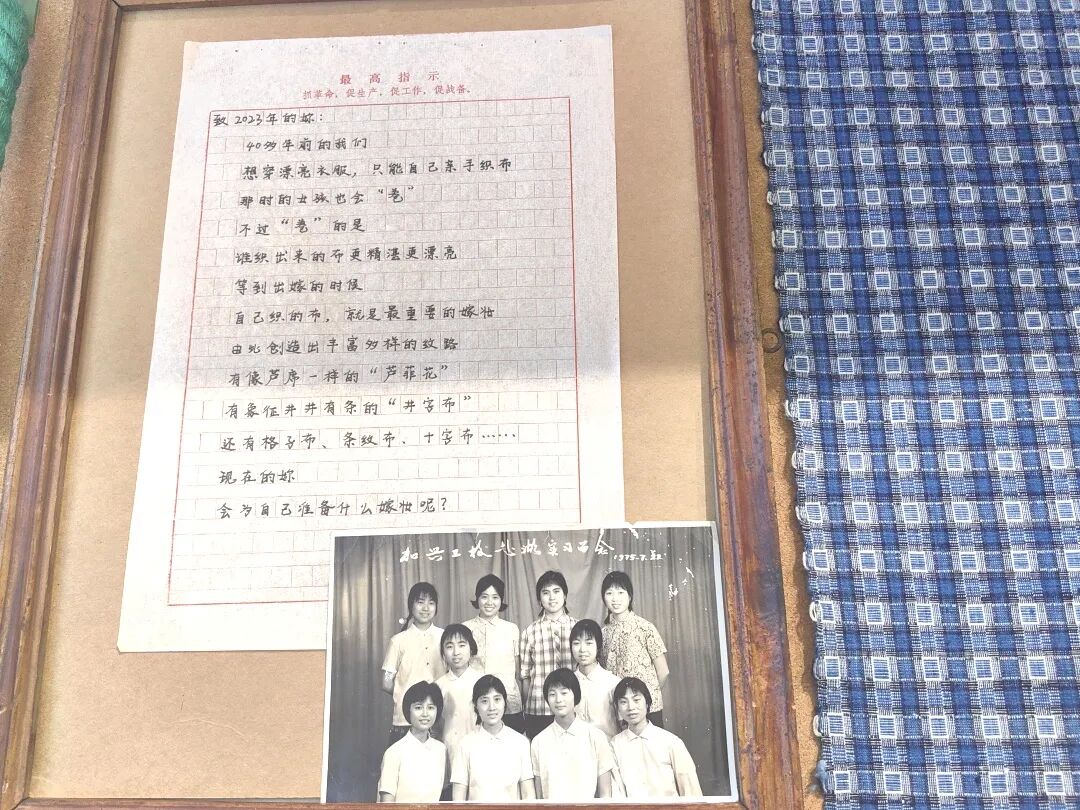 最高指示
抓革命，促生产，促工作，促战备。
致2023年的妳：
40多年前的我们
想穿漂亮衣服，只能自己亲手织布
那时的女孩也会“卷”
不过“卷”的是
谁织出来的布更精湛更漂亮
等到出嫁的时候
自己织的布，就是最重要的嫁妆
由此创造出丰富多样的纹路
有像芦席一样的“芦菲花”
有象征井井有条的“井字布”
还有格子布、条纹布、十字布……
现在的妳
会为自己准备什么嫁妆呢？
1975.7.